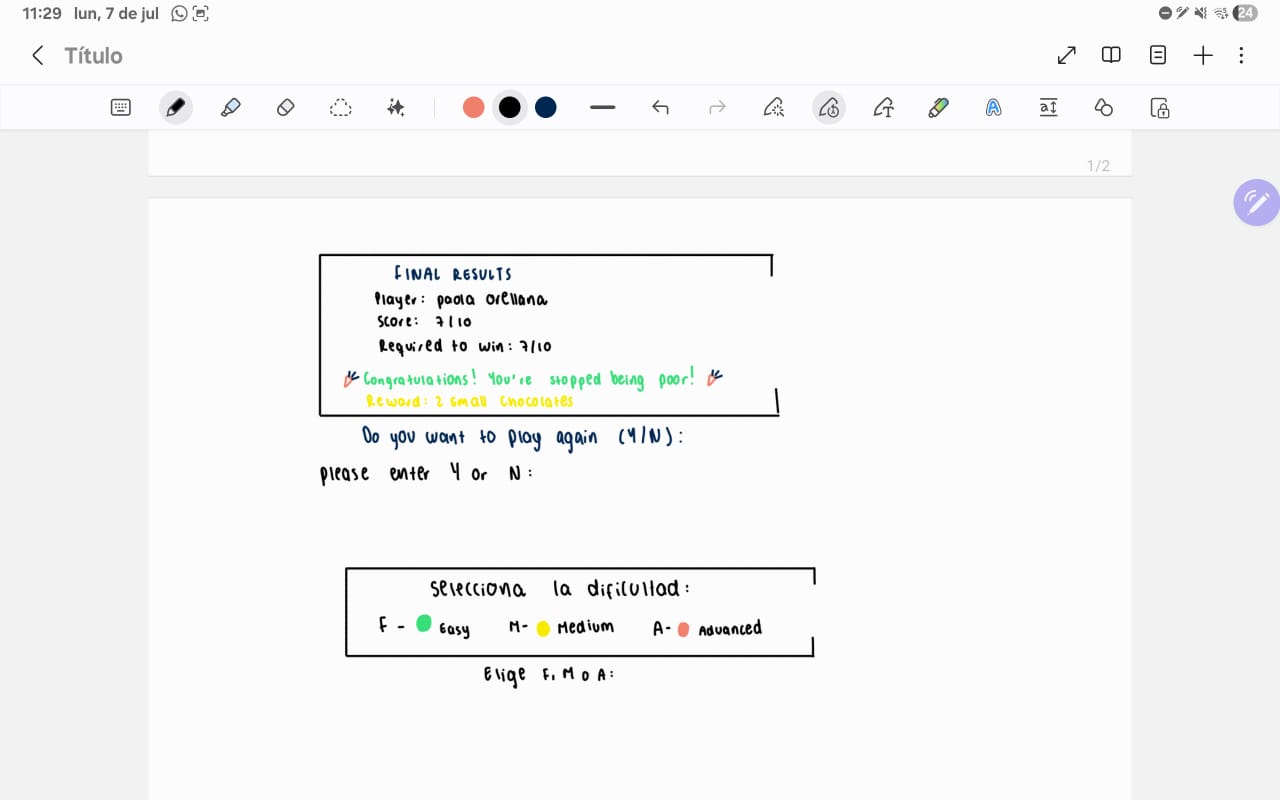 11:29 lun, 7 de jul 24
Título
1/2
FINAL RESULTS
Player: paola orellana
Score: 7/10
Required to win: 7/10
Congratulations! You're stopped being poor!
Reward: 2 small chocolates
Do you want to play again (Y/N):
please enter Y or N:
selecciona la dificultad:
F - Easy M- Medium A- Advanced
Elige F, M o A: